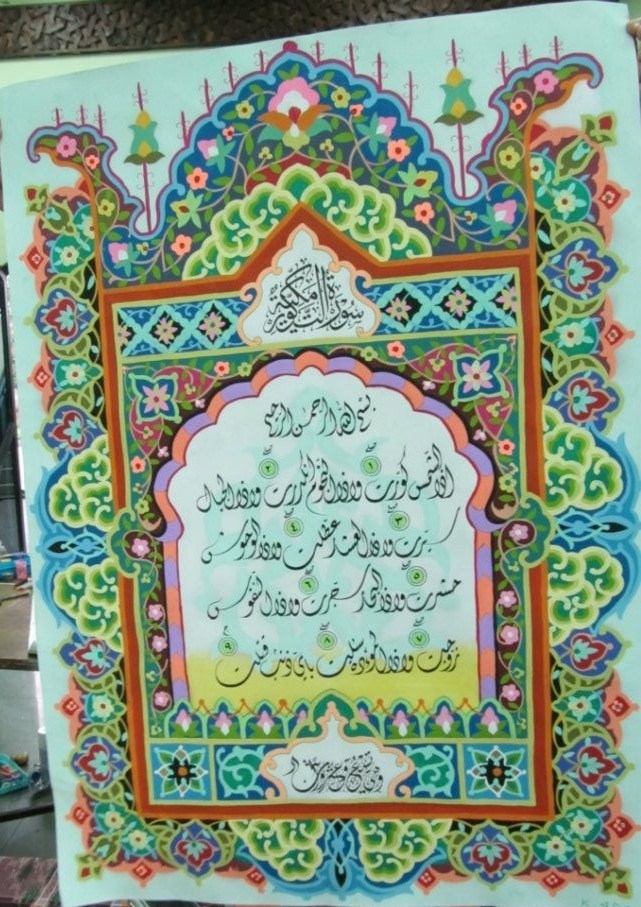 سورة التكوير مكية
بسم الله الرحمن الرحيم
اذا الشمس كورت ١ واذا النجوم انكدرت ٢ واذا الجبال
سيرت ٣ واذا العشار عطلت ٤ واذا الوحوش
حشرت ٥ واذا البحار سجرت ٦ واذا النفوس
زوجت ٧ واذا الموءدة سئلت ٨ باي ذنب قتلت ٩
وهي تسع وعشرون